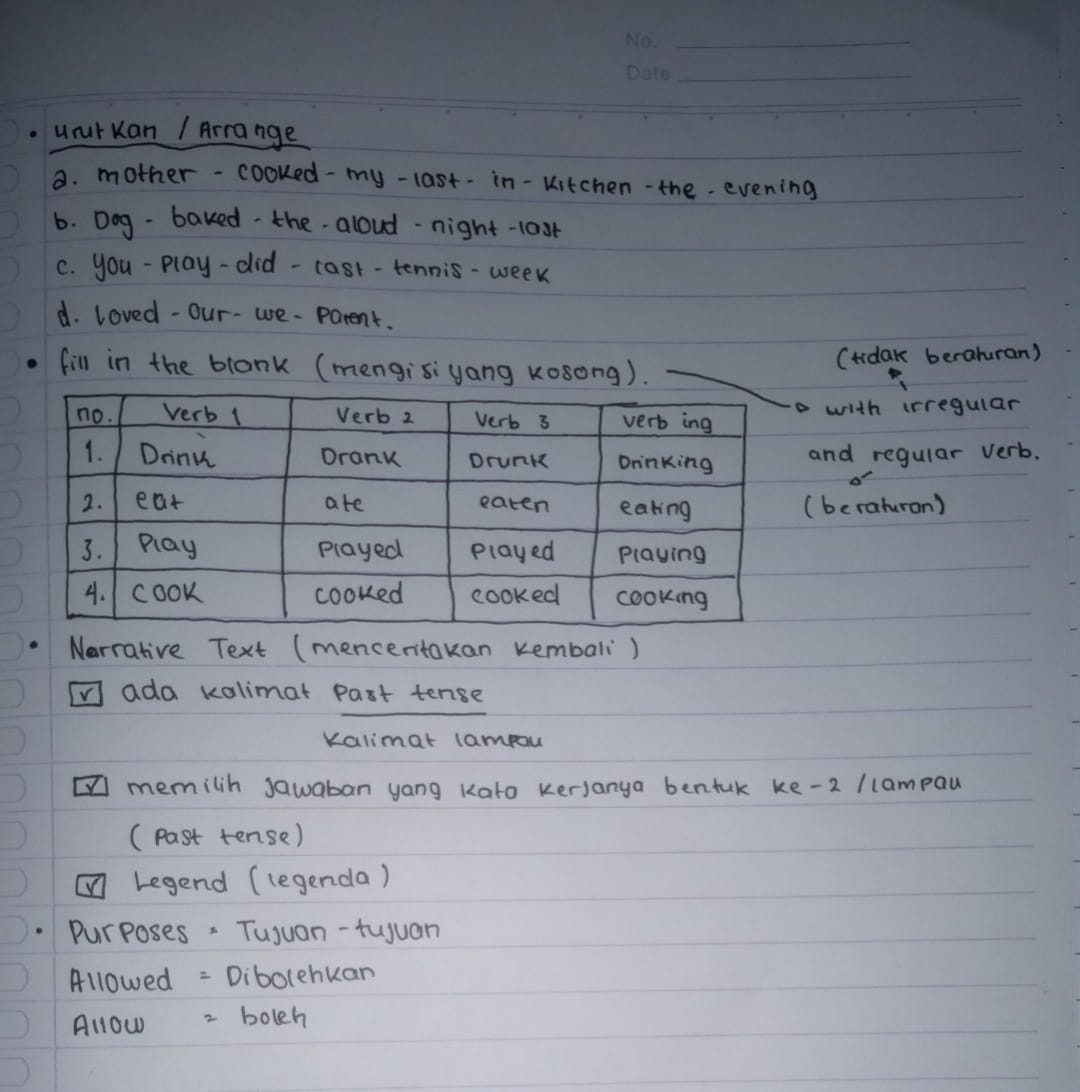 No.
Date
• urutkan / Arrange
a. mother - cooked - my - last - in - kitchen - the - evening
b. Dog - baked - the - aloud - night - last
c. you - play - did - last - tennis - week
d. loved - our - we - parent.
• fill in the blank (mengisi yang kosong).
(tidak beraturan)
with irregular
and regular verb.
(beraturan)
no. Verb 1 Verb 2 Verb 3 Verb ing
1. Drink Drank Drunk Drinking
2. eat ate eaten eating
3. Play Played Played Playing
4. cook cooked cooked cooking
• Narrative Text (menceritakan kembali)
☑ ada kalimat past tense
kalimat lampau
☑ memilih jawaban yang kata kerjanya bentuk ke-2 / lampau
(past tense)
☑ Legend (legenda)
• Purposes = Tujuan-tujuan
Allowed = Dibolehkan
Allow = boleh